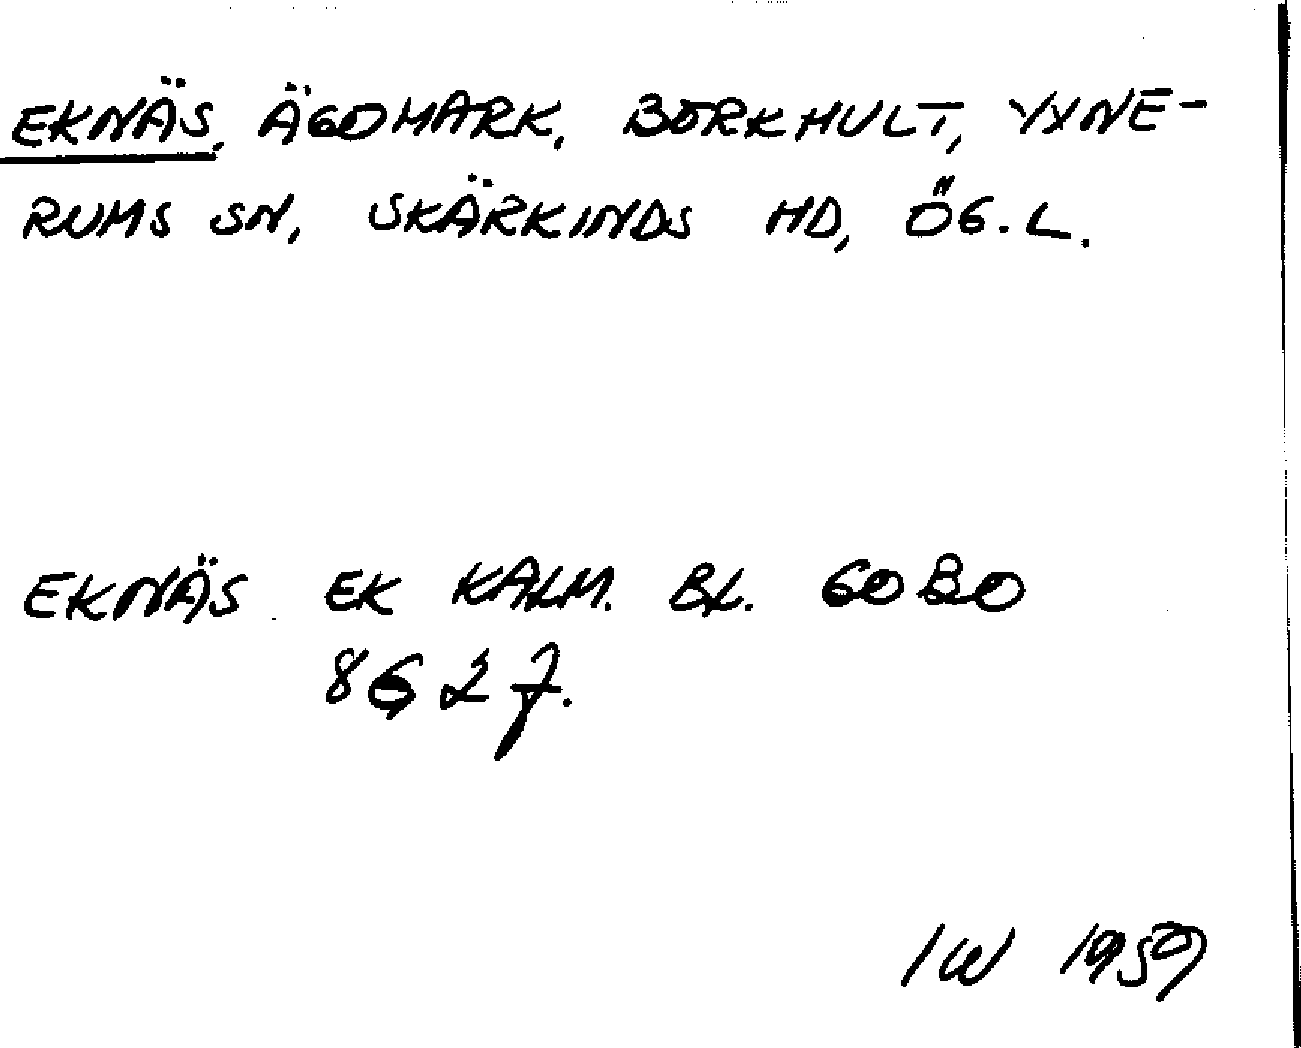 EKNÄS, ÄGOMARK, BORKHULT, YXNE-
RUMS SN, SKÄRKINDS HD, ÖG. L.
EKNÄS EK KALM. BL. GOBO
8G2 7.
IW 1959